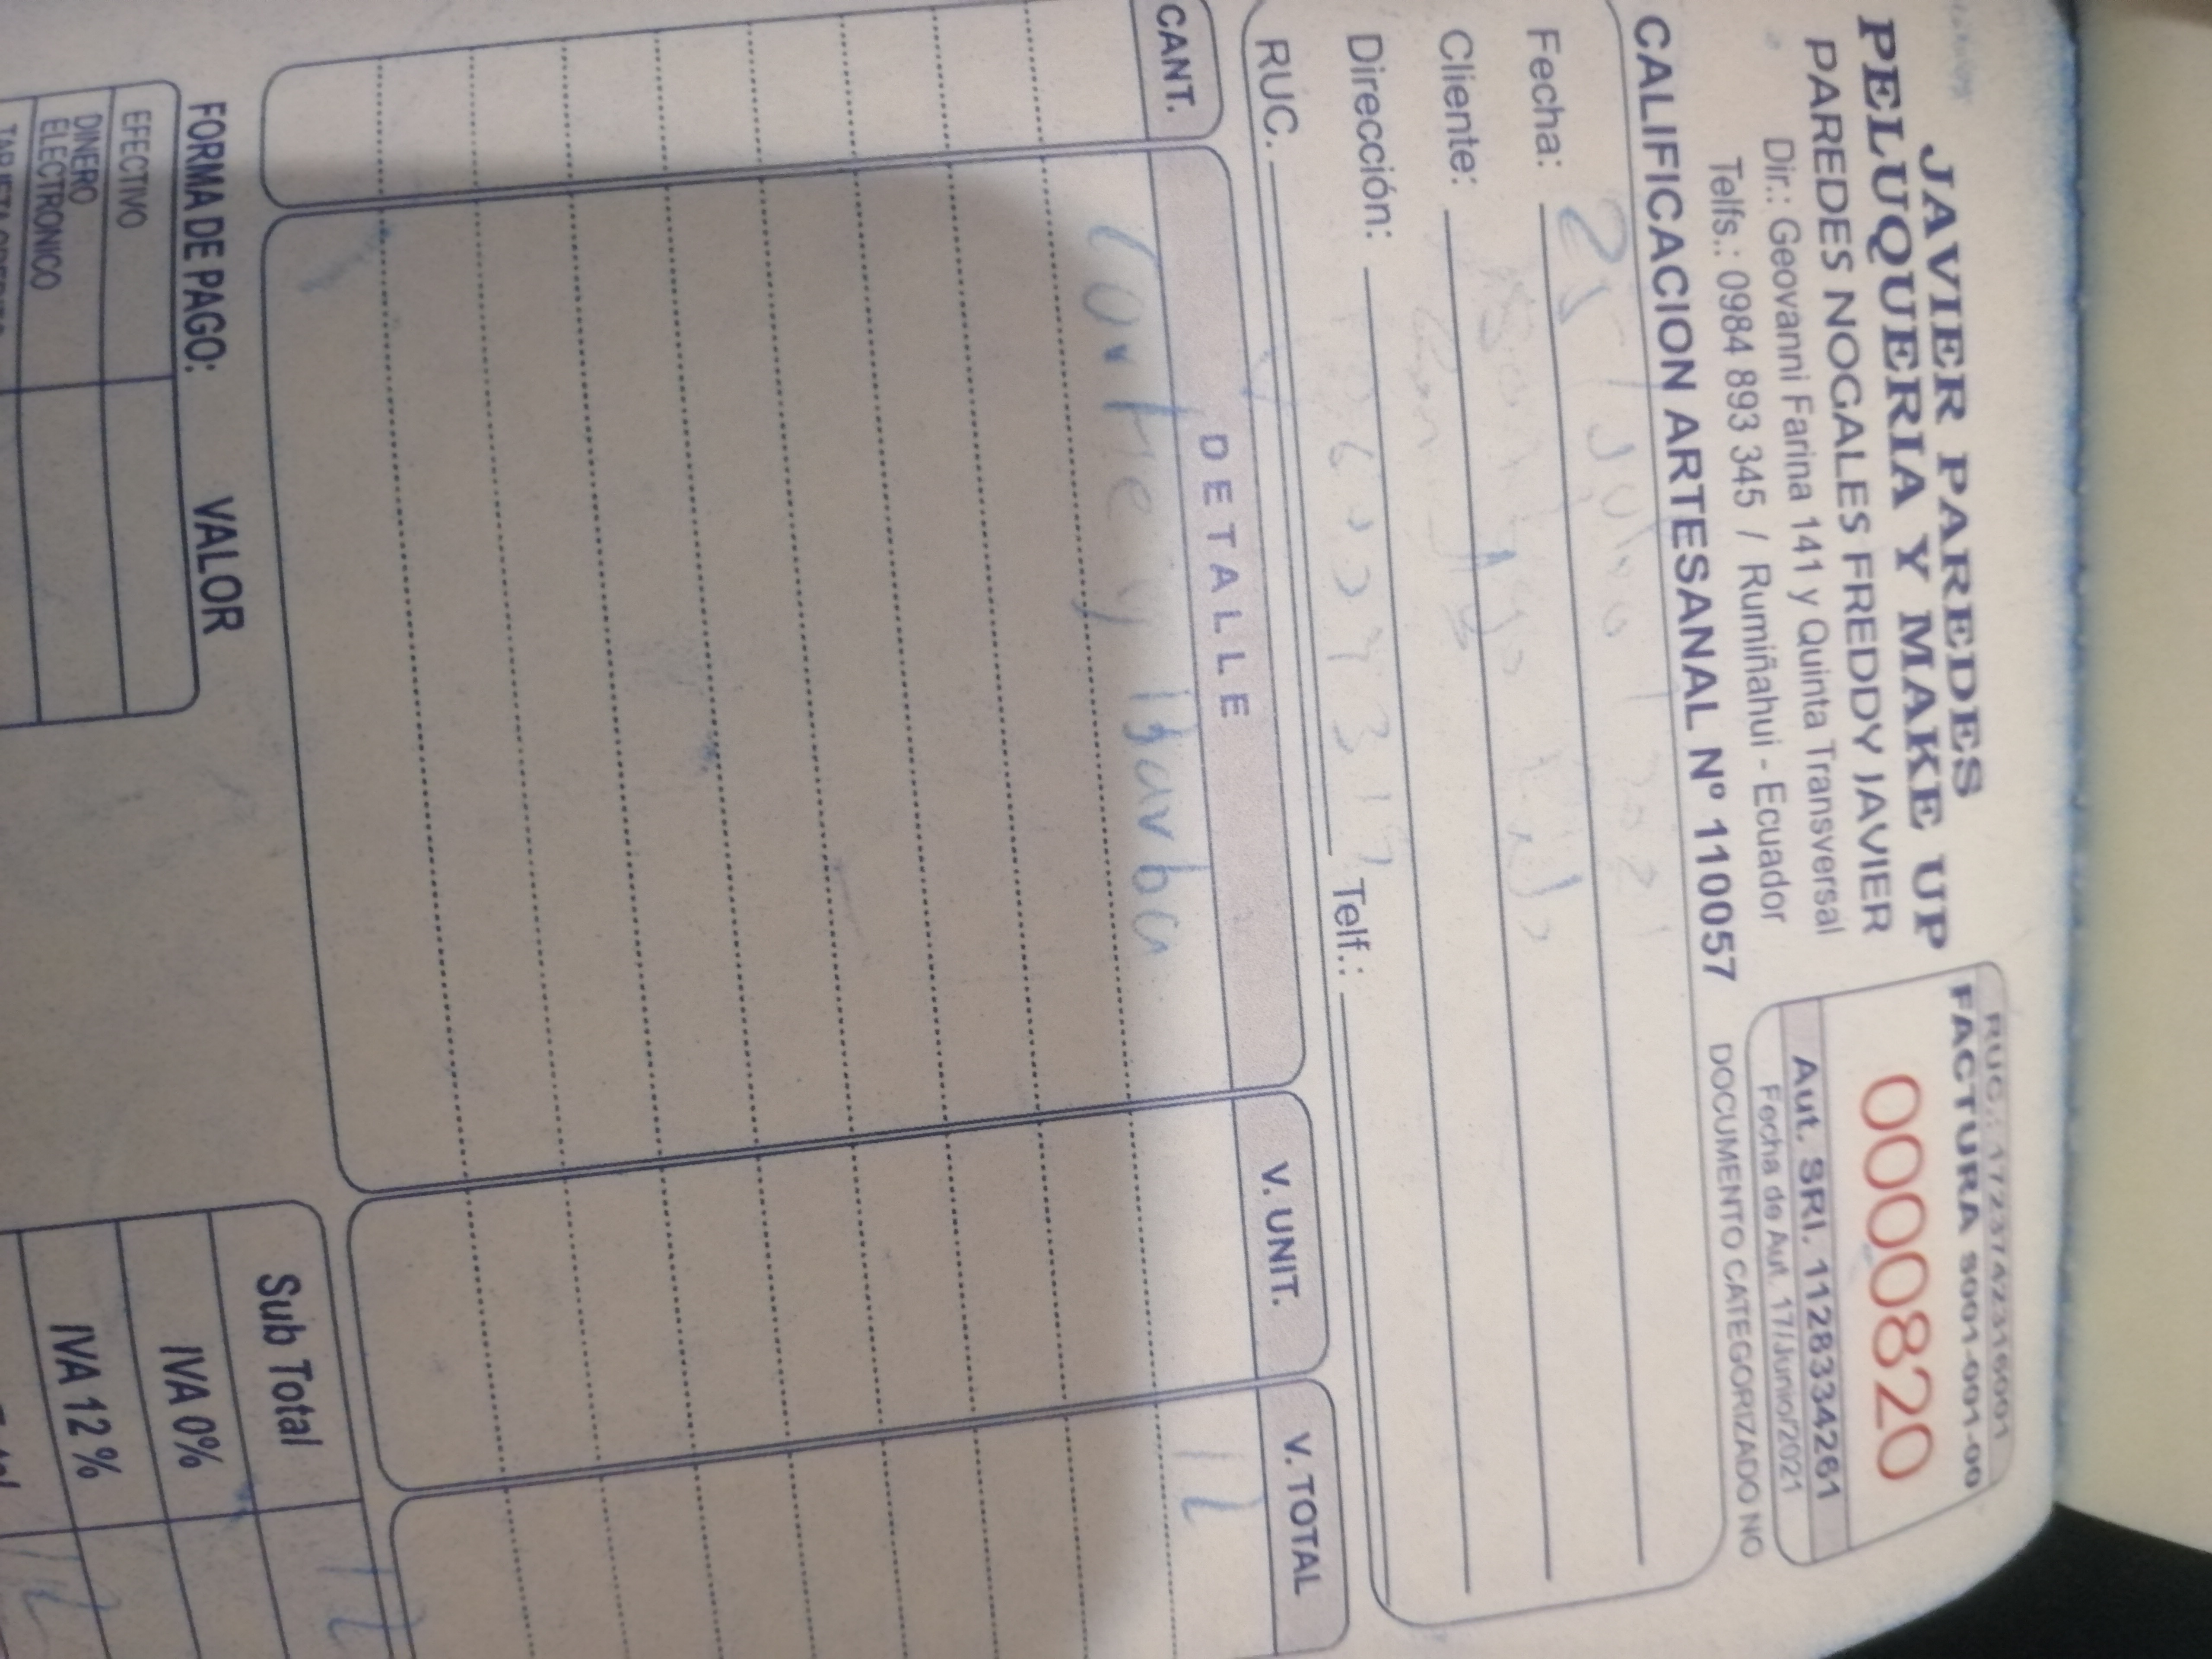 JAVIER PAREDES
PELUQUERIA Y MAKE UP
PAREDES NOGALES FREDDY JAVIER
Dir.: Geovanni Farina 141 y Quinta Transversal
Telfs.: 0984 893 345 / Rumiñahui - Ecuador
CALIFICACION ARTESANAL Nº 110057
RUC.: 1723742316001
FACTURA S001-001-00
0000820
Aut. SRI. 1128334261
Fecha de Aut. 17/Junio/2021
DOCUMENTO CATEGORIZADO NO
Fecha: 25 / Julio /
Cliente:
Dirección:
RUC. Telf.:
CANT. DETALLE V. UNIT. V. TOTAL
Corte y Barba 12
FORMA DE PAGO: VALOR
EFECTIVO
DINERO ELECTRONICO
Sub Total 12
IVA 0%
IVA 12 %
12